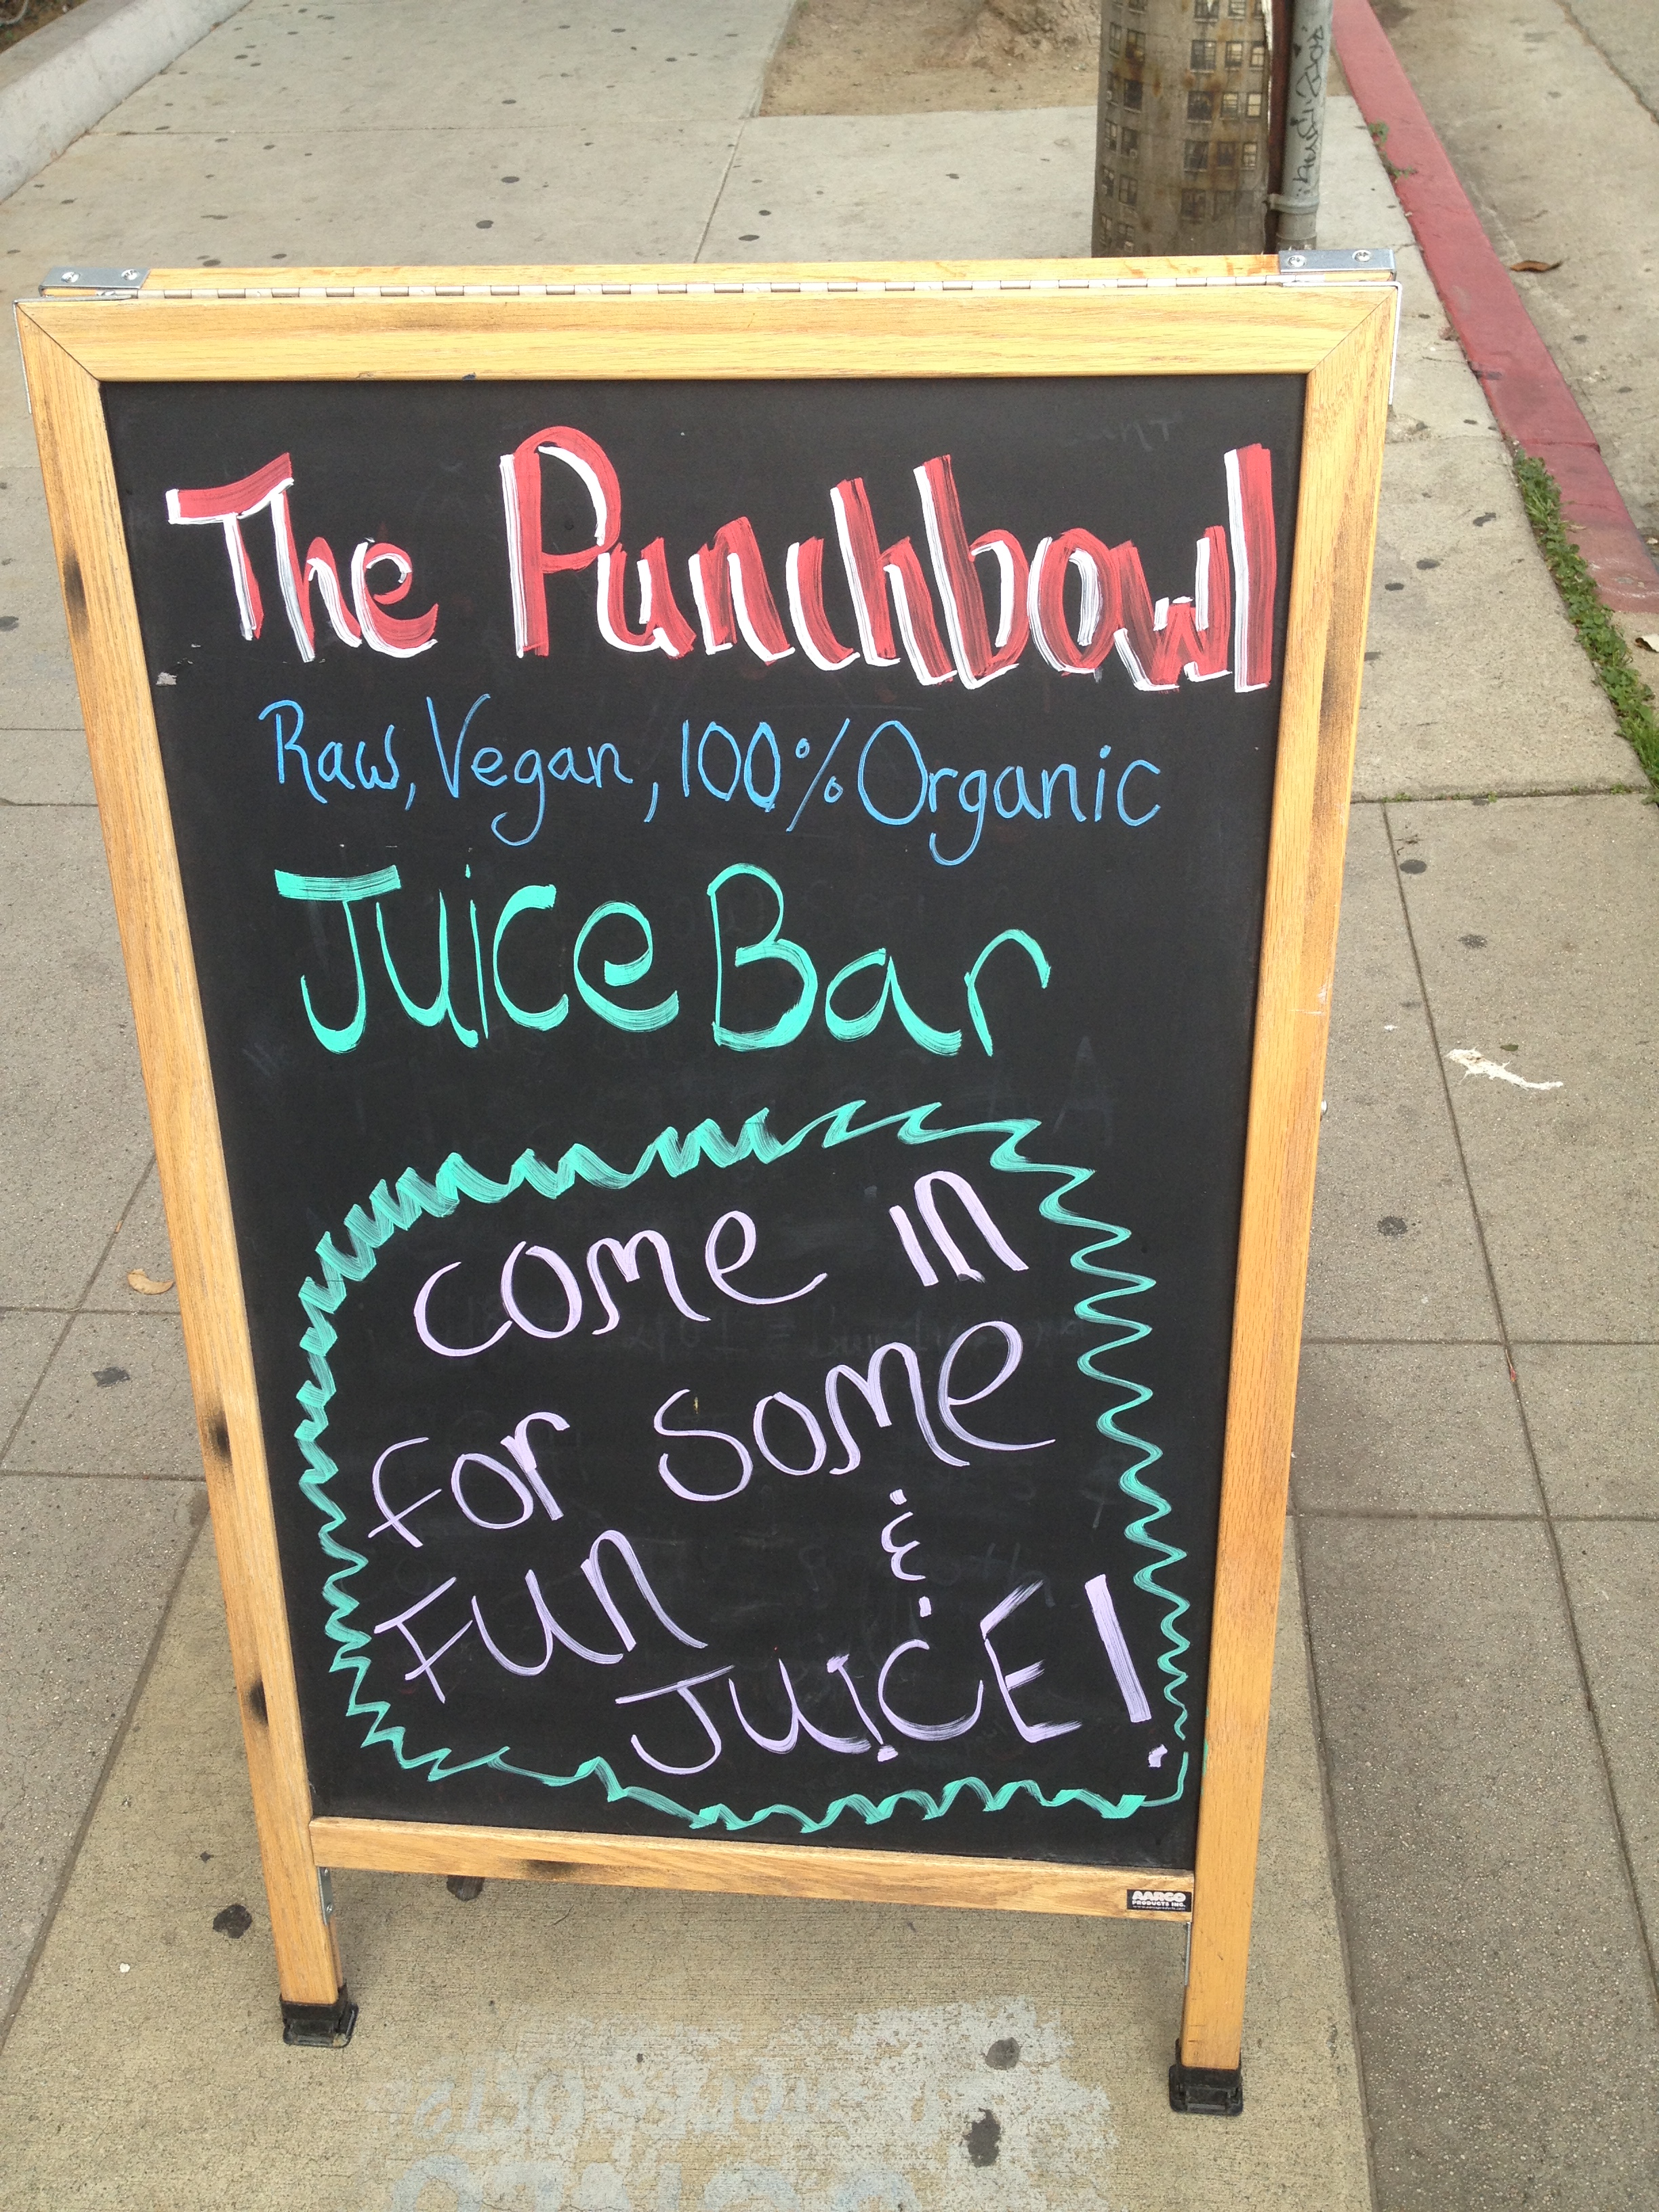 The Punchbowl
Raw, Vegan, 100% Organic
Juice Bar
come in
for some
Fun &
JUiCE!
AARCO
PRODUCTS INC.